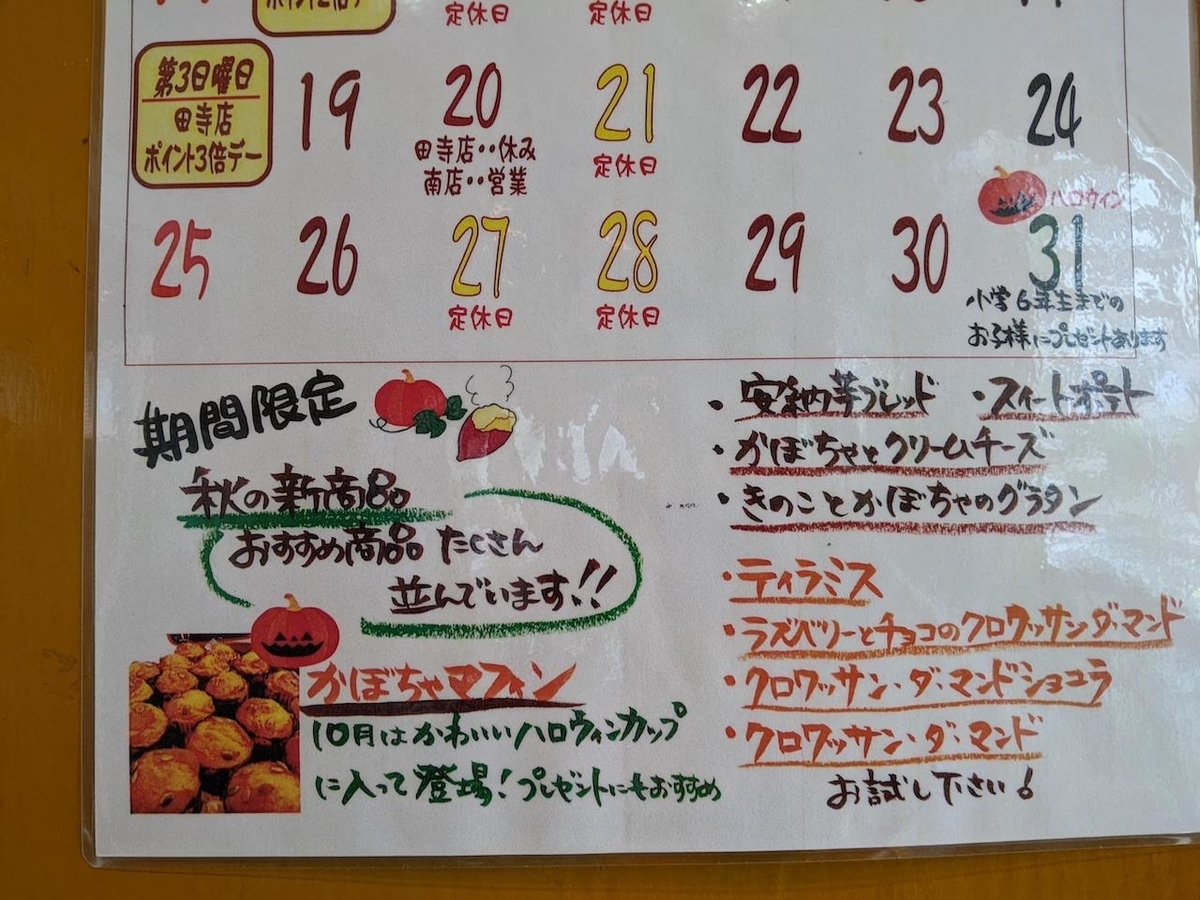 ポイント2倍デー
定休日
定休日
第3日曜日
田寺店
ポイント3倍デー
19
20
21
22
23
24
田寺店‥休み
南店‥営業
定休日
ハロウィン
25
26
27
28
29
30
31
定休日
定休日
小学6年生までの
お子様にプレゼントあります
期間限定
秋の新商品
おすすめ商品たくさん
並んでいます!!
かぼちゃマフィン
10月はかわいいハロウィンカップ
に入って登場!プレゼントにもおすすめ
・安納芋ブレッド ・スイートポテト
・かぼちゃとクリームチーズ
・きのことかぼちゃのグラタン
・ティラミス
・ラズベリーとチョコのクロワッサンダ・マンド
・クロワッサン・ダ・マンドショコラ
・クロワッサン・ダ・マンド
お試し下さい!